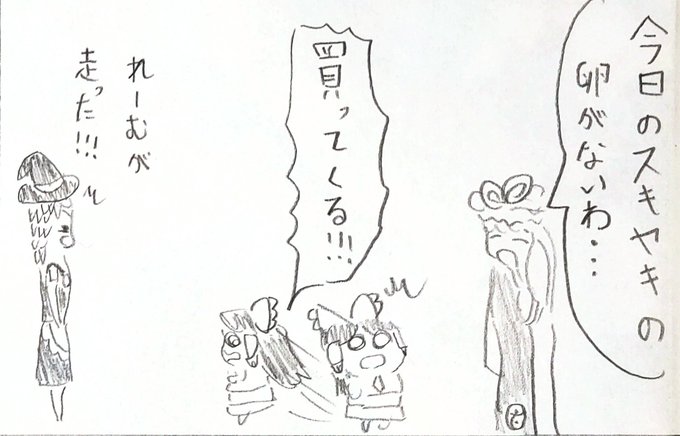 今日のスキヤキの
卵がないわ・・・
買ってくる!!!
れーむが
走った!!!